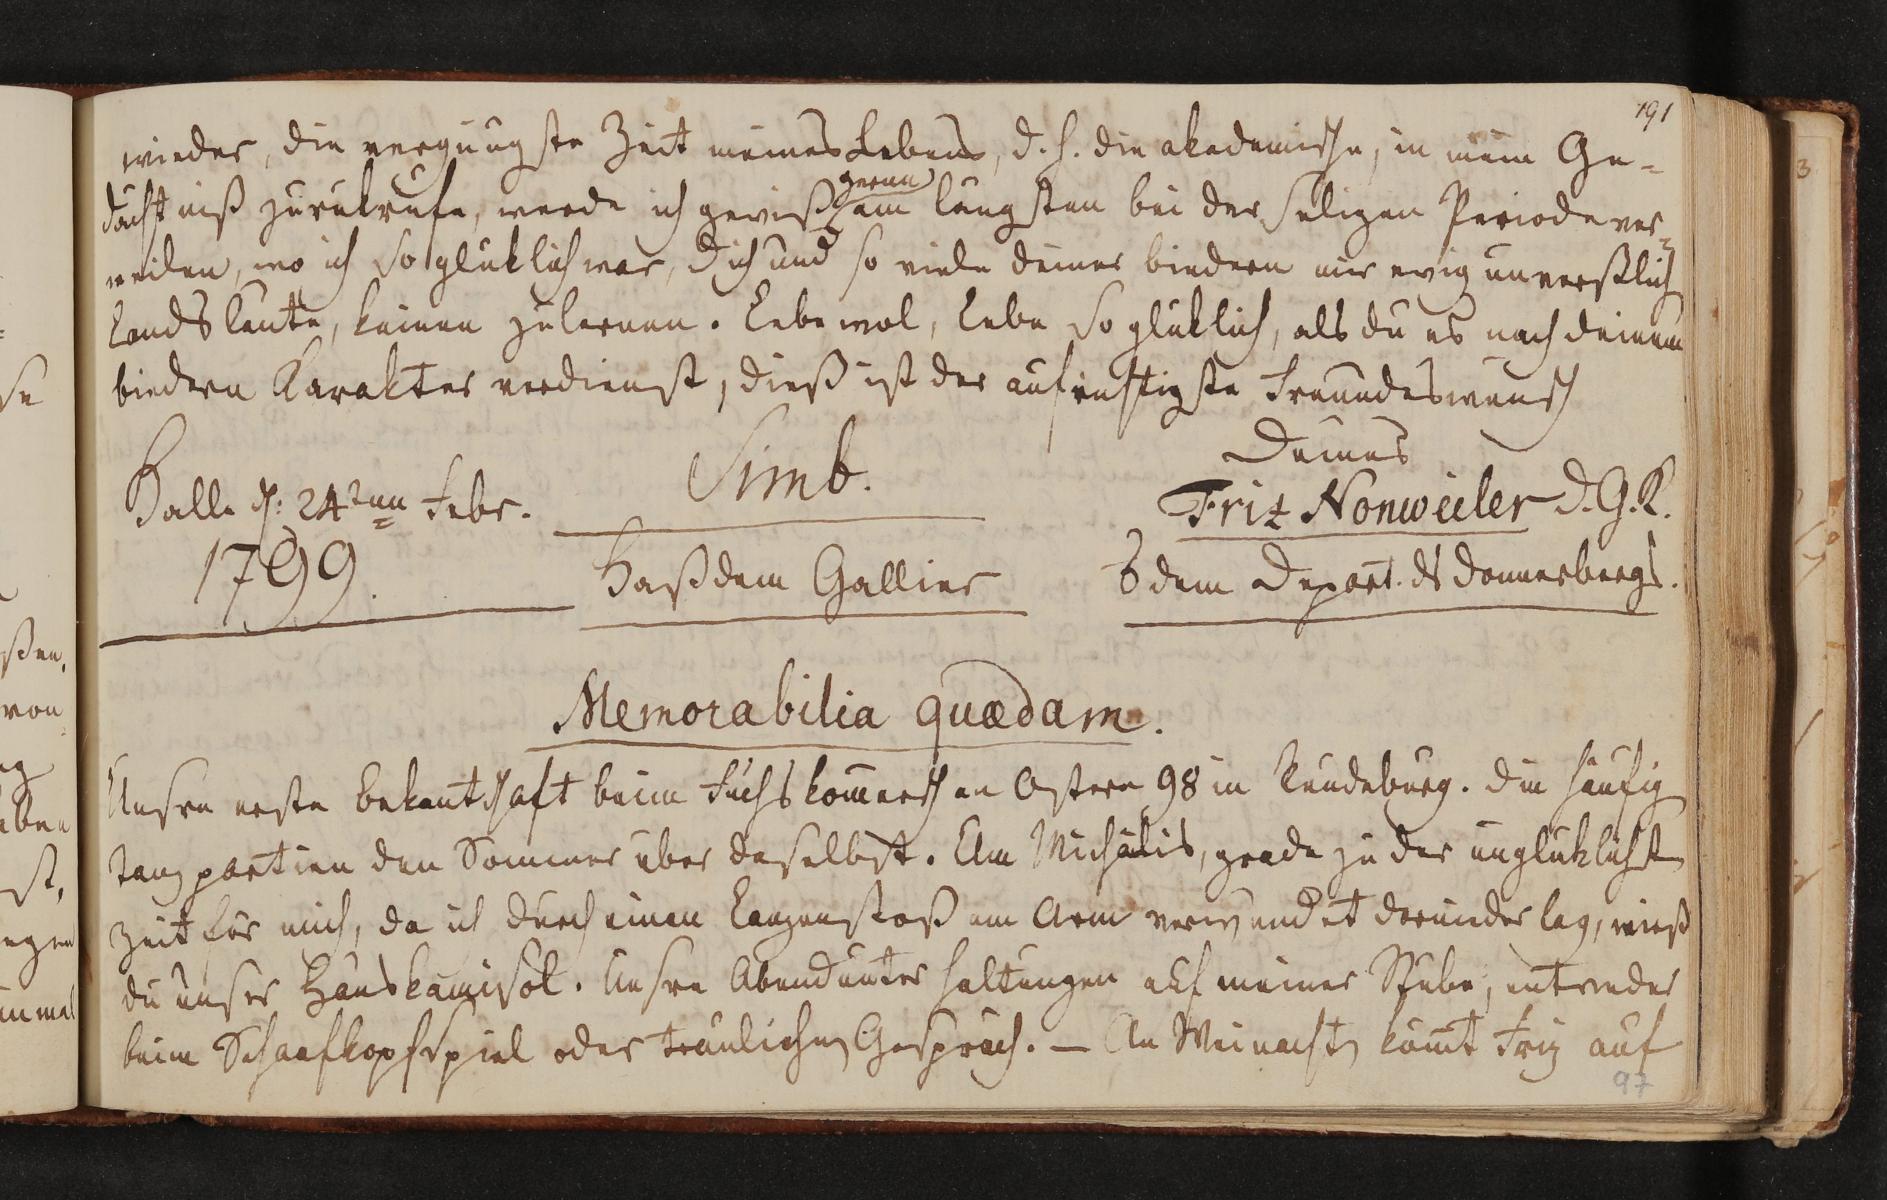 191
wieder, die vergnügste Zeit meines Lebens, d. h. die akademische, in mein Ge-
dächtniß zurükrufe, werde ich gewiß gerne am längsten bei der seligen Periode ver-
weilen, wo ich so glüklich war, dich und so viele deiner biedern mir ewig unvergeßlich
Landsleute, kennen zu lernen. Lebe wol, lebe so glüklich, als du es nach deinem
biedern Karakter verdienst, dieß ist der aufrichtigste Freundeswunsch
Deines
Simb.
Halle d. 24ten Febr.
1799.
Fritz Nonweiler d. G. K.
Haß dem Gallier
dem Depart. ds Donnersbergs.
Memorabilia quædam.
Unsre erste Bekantschaft beim Fuchskommersch an Ostern 98 in Reudeburg. Die häufig
Tanzpartien den Sommer über daselbst. Um Michälis, grade zu der unglüklichsten
Zeit für mich, da ich durch einen Lanzenstoß am Arm verwundet darnider lag,
du unser Hauskamisol. Unsre Abendunterhaltungen auf meiner Stube, entweder
beim Schaafkopfspiel oder traulichen Gespräch. — An Weinachten kömt Friz auf
97